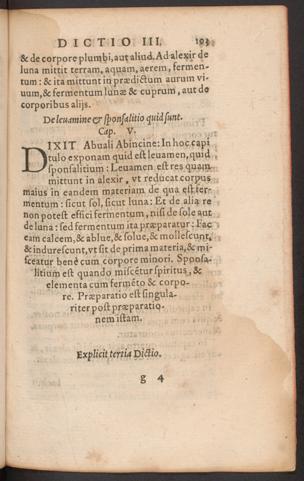 DICTIO III. 103
& de corpore plumbi, aut aliud. Ad alexir de
luna mittit terram, aquam, aerem, fermen-
tum : & ita mittunt in prædictum aurum vi-
uum, & fermentum lunæ & cuprum, aut de
corporibus alijs.
De leuamine & sponsalitio quid sunt.
Cap. V.
DIXIT Abuali Abincine: In hoc capi
tulo exponam quid est leuamen, quid
sponsalitium : Leuamen est res quam
mittunt in alexir, vt reducat corpus
maius in eandem materiam de qua est fer-
mentum : sicut sol, sicut luna: Et de alia re
non potest effici fermentum, nisi de sole aut
de luna : sed fermentum ita præparatur: Fac
eam calcem, & ablue, & solue, & mollescunt,
& indurescunt, vt sit de prima materia, & mi-
sceatur benè cum corpore minori. Sponsa-
litium est quando miscétur spiritus, &
elementa cum fermẽto & corpo-
re. Præparatio est singula-
riter post præparatio-
nem istam.
Explicit tertia Dictio.
g 4